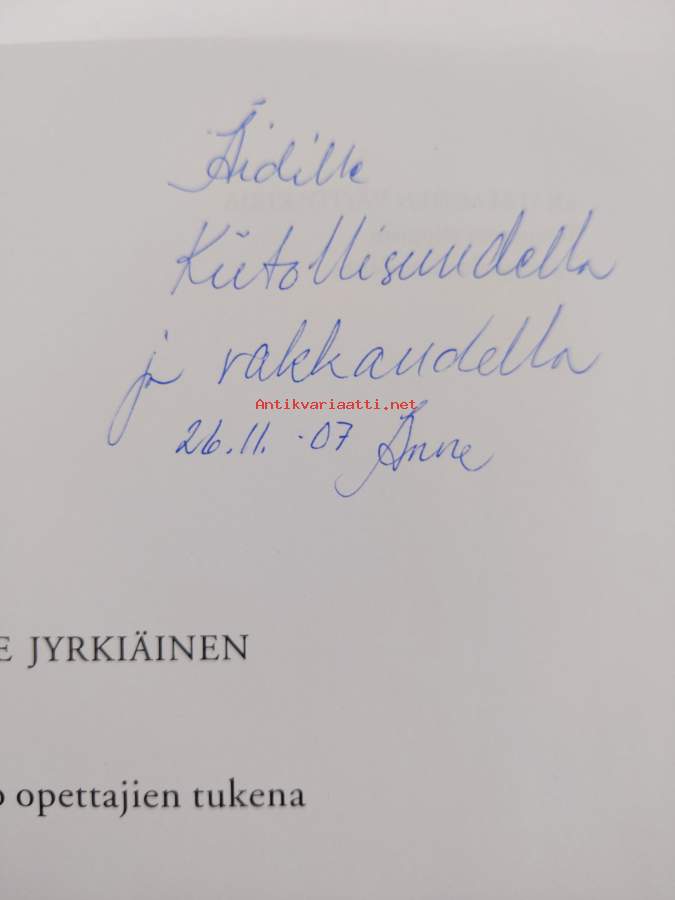 Äidille
Kiitollisuudella
ja rakkaudella
Antikvariaatti.net
26.11.-07 Anne
E JYRKIÄINEN
o opettajien tukena